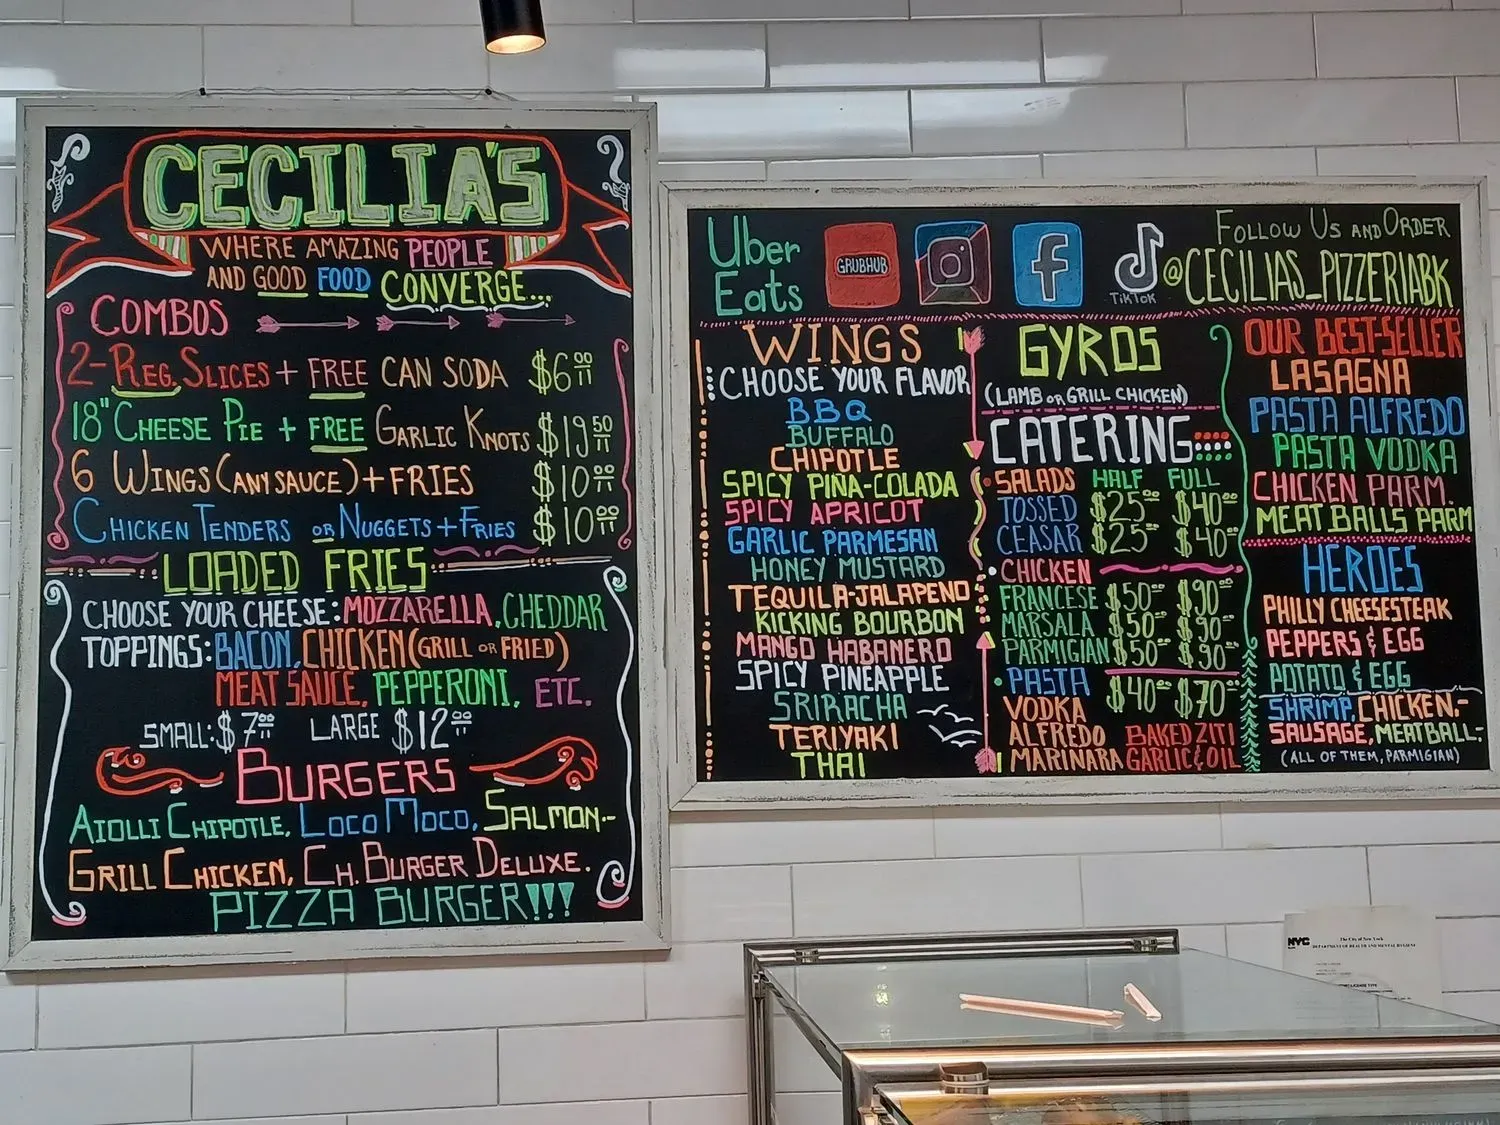 CECILIA'S
WHERE AMAZING PEOPLE
AND GOOD FOOD CONVERGE...
COMBOS
2-REG. SLICES + FREE CAN SODA $6.00
18" CHEESE PIE + FREE GARLIC KNOTS $19.50
6 WINGS (ANY SAUCE) + FRIES $10.00
CHICKEN TENDERS OR NUGGETS + FRIES $10.00
LOADED FRIES
CHOOSE YOUR CHEESE: MOZZARELLA, CHEDDAR
TOPPINGS: BACON, CHICKEN (GRILL OR FRIED)
MEAT SAUCE, PEPPERONI, ETC.
SMALL: $7.00 LARGE $12.00
BURGERS
AIOLLI CHIPOTLE, LOCO MOCO, SALMON--
GRILL CHICKEN, CH. BURGER DELUXE.
PIZZA BURGER!!!
Uber
Eats
GRUBHUB
TikTok
FOLLOW US AND ORDER
@CECILIAS_PIZZERIABK
WINGS
CHOOSE YOUR FLAVOR
BBQ
BUFFALO
CHIPOTLE
SPICY PIÑA-COLADA
SPICY APRICOT
GARLIC PARMESAN
HONEY MUSTARD
TEQUILA-JALAPEÑO
KICKING BOURBON
MANGO HABANERO
SPICY PINEAPPLE
SRIRACHA
TERIYAKI
THAI
GYROS
(LAMB OR GRILL CHICKEN)
CATERING
SALADS HALF FULL
TOSSED $25.00 $40.00
CEASAR $25.00 $40.00
CHICKEN
FRANCESE $50.00 $90.00
MARSALA $50.00 $90.00
PARMIGIAN $50.00 $90.00
PASTA $40.00 $70.00
VODKA
ALFREDO BAKED ZITI
MARINARA GARLIC & OIL
OUR BEST-SELLER
LASAGNA
PASTA ALFREDO
PASTA VODKA
CHICKEN PARM.
MEAT BALLS PARM
HEROES
PHILLY CHEESESTEAK
PEPPERS & EGG
POTATO & EGG
SHRIMP, CHICKEN,-
SAUSAGE, MEATBALL-
(ALL OF THEM, PARMIGIAN)
NYC
The City of New York
DEPARTMENT OF HEALTH AND MENTAL HYGIENE